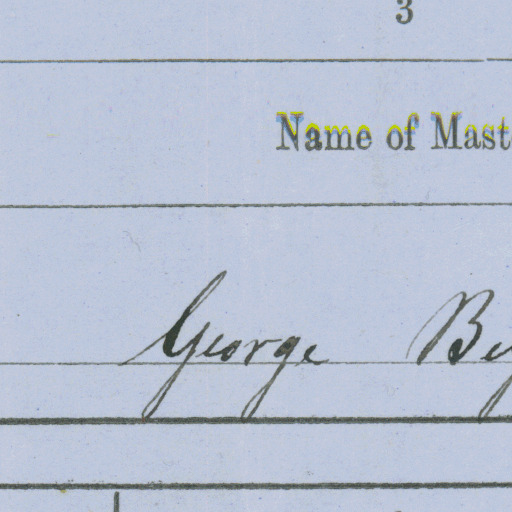 3
Name of Mast
George Be